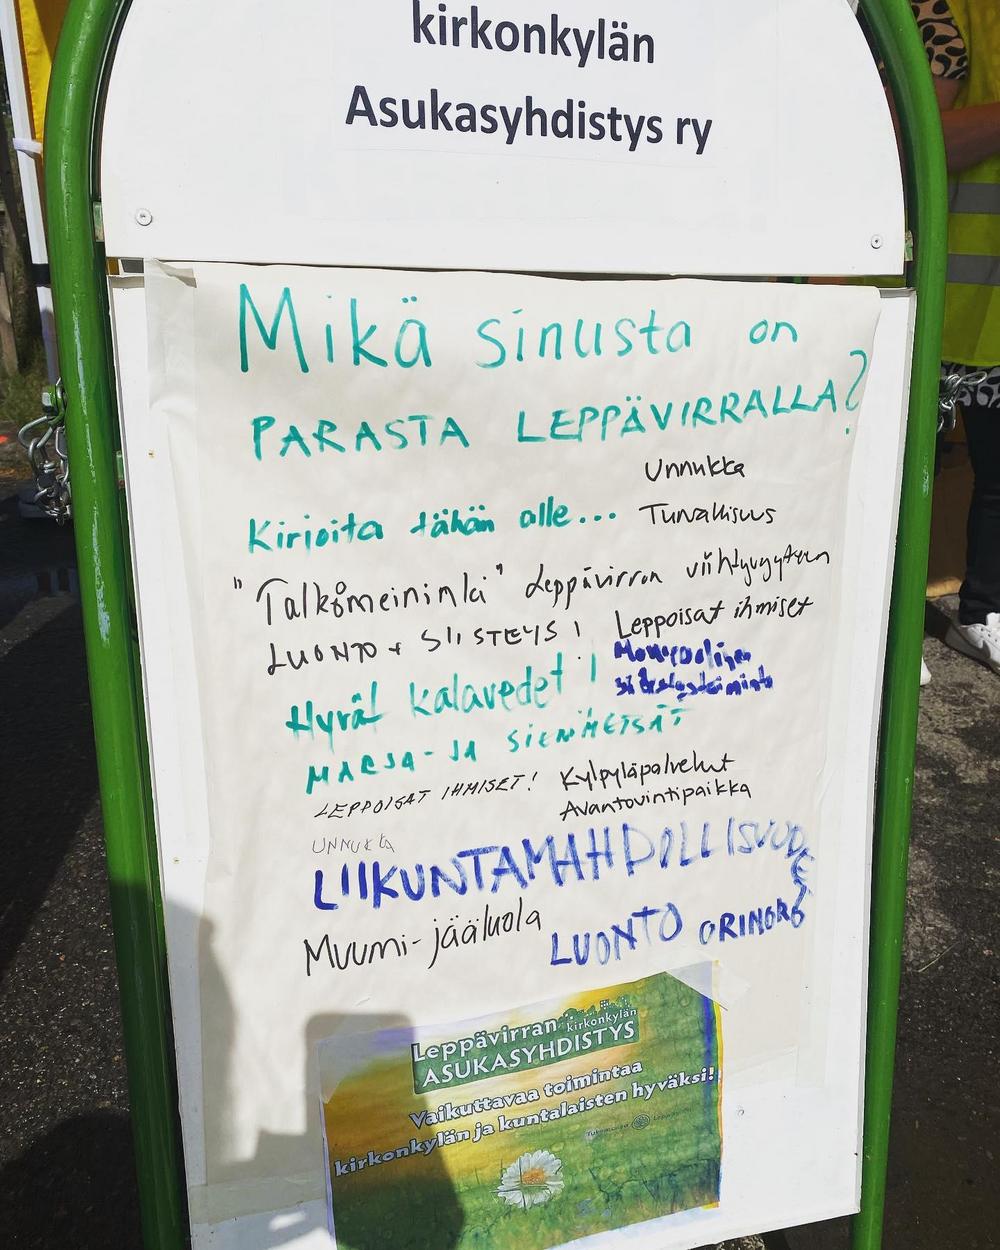 kirkonkylän
Asukasyhdistys ry
Mikä sinusta on
PARASTA LEPPÄVIRRALLA?
Unnukka
Kirjoita tähän alle...
Turvallisuus
"Talkömeininki" Leppävirran viihtyvyyteen
LUONTO + SIISTEYS!
Leppoisat ihmiset
Monipuolinen
Hyvät kalavedet!
MARJA- JA SIENIMETSÄT
LEPPOISAT IHMISET!
Kylpyläpalvelut
Avantouintipaikka
UNNUKKA
LIIKUNTAMAHDOLLISUUDET
Muumi-jääluola
LUONTO ORINORO
Leppävirran kirkonkylän
ASUKASYHDISTYS
Vaikuttavaa toimintaa
kirkonkylän ja kuntalaisten hyväksi!